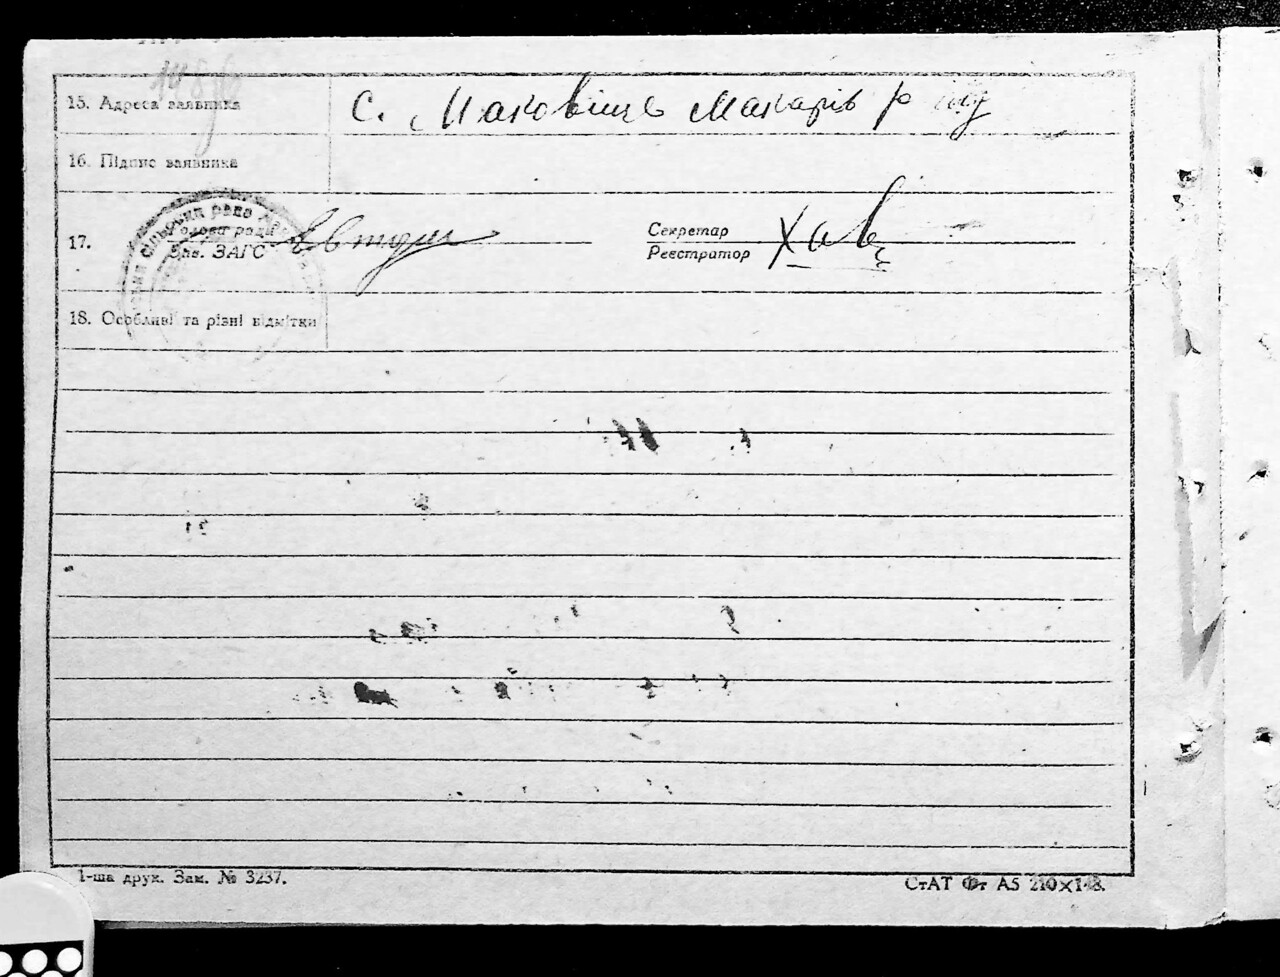 15. Адреса заявника
с. Маковище Макарів р
16. Підпис заявника
17.
Голова ради
Зав. ЗАГС
Секретар
Реєстратор
Хав
18. Особливі та різні відмітки
1-ша друк. Зам. № 3237.
СтАТ Фт А5 210×148.